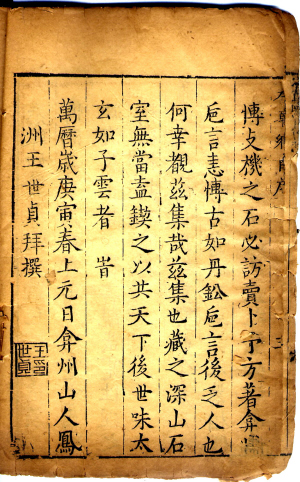 博支機之石必訪賣卜予方著弇州
巵言恚博古如丹鉛巵言後乏人也
何幸覩茲集哉茲集也藏之深山石
室無當盍鍥之以共天下後世味太
玄如子雲者 旹
萬曆歲庚寅春上元日弇州山人鳳
洲王世貞拜撰
王印
世貞